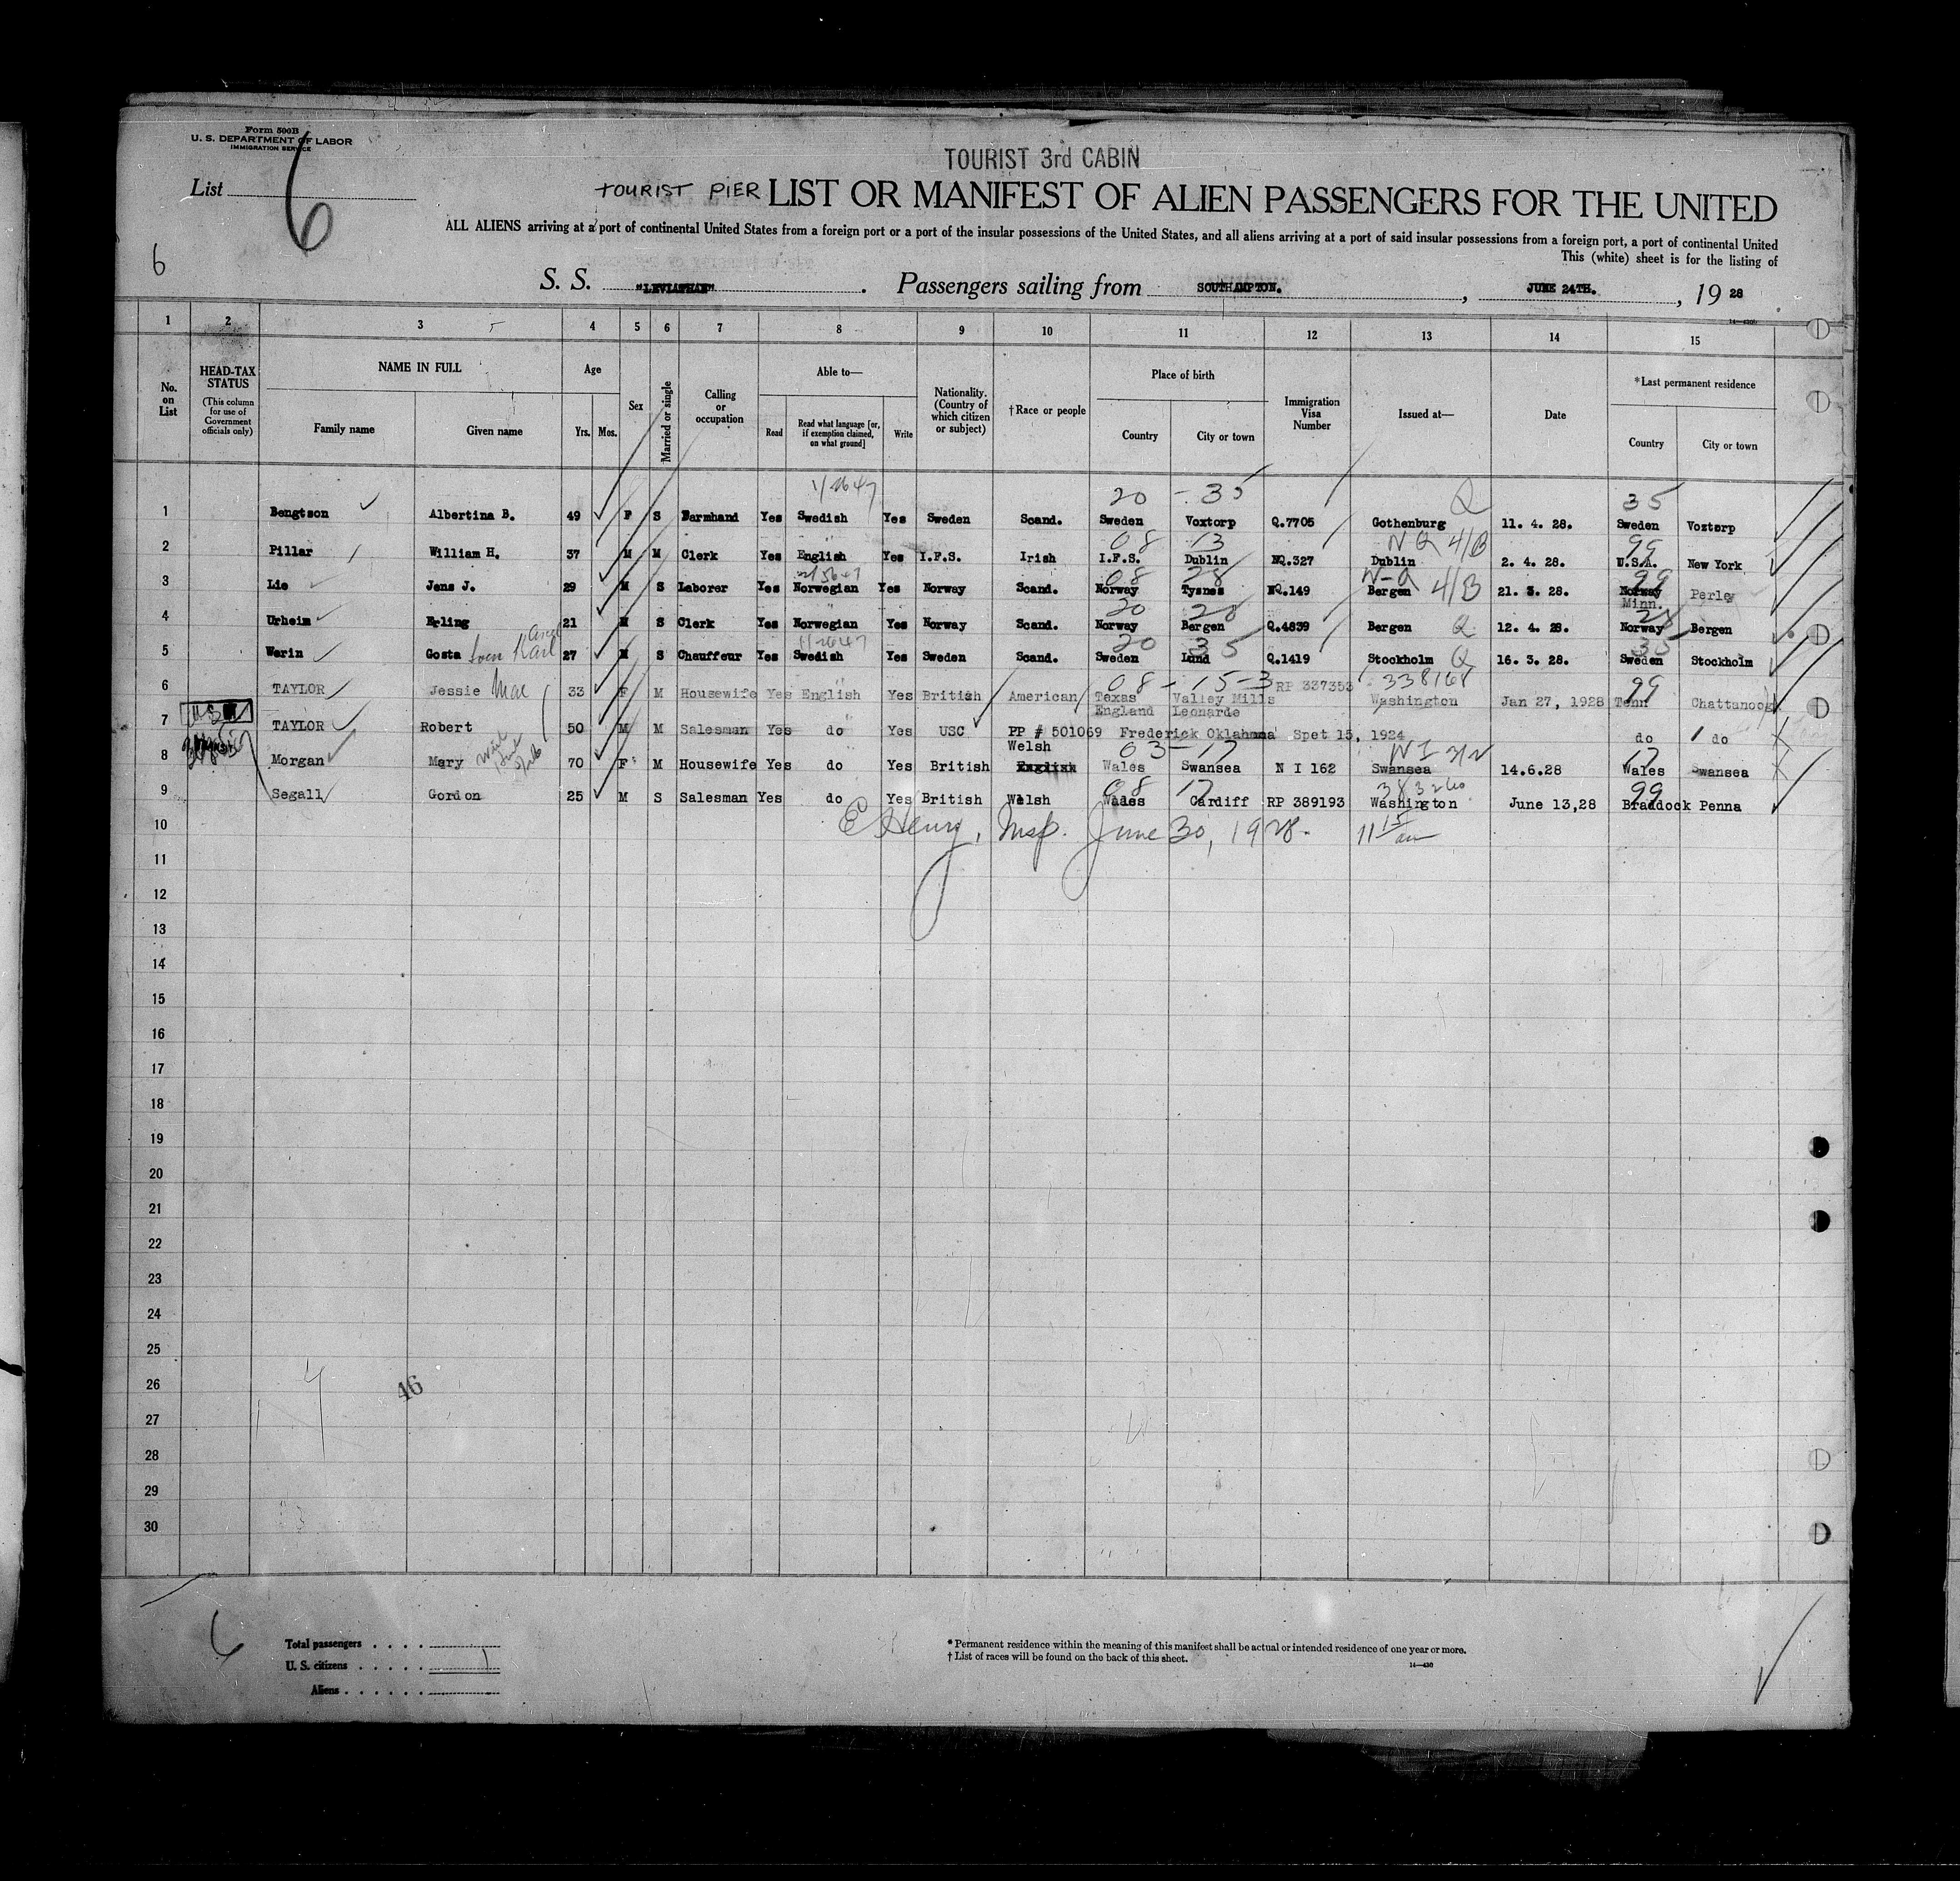 Form 500B
U. S. DEPARTMENT OF LABOR
IMMIGRATION SERVICE
TOURIST 3rd CABIN
List 6
TOURIST PIER LIST OR MANIFEST OF ALIEN PASSENGERS FOR THE UNITED
ALL ALIENS arriving at a port of continental United States from a foreign port or a port of the insular possessions of the United States, and all aliens arriving at a port of said insular possessions from a foreign port, a port of continental United
This (white) sheet is for the listing of
6
S. S. "LEVIATHAN". Passengers sailing from SOUTHAMPTON. , JUNE 24TH. , 19 28
1 2 3 4 5 6 7 8 9 10 11 12 13 14 15
No. on List
HEAD-TAX STATUS
(This column for use of Government officials only)
NAME IN FULL
Family name Given name
Age
Yrs. Mos.
Sex
Married or single
Calling or occupation
Able to—
Read Read what language [or, if exemption claimed, on what ground] Write
Nationality. (Country of which citizen or subject)
†Race or people
Place of birth
Country City or town
Immigration Visa Number
Issued at—
Date
*Last permanent residence
Country City or town
20 - 35 Q 35
1 Bengtson Albertina B. 49 F S Farmhand Yes Swedish Yes Sweden Scand. Sweden Voxtorp Q.7705 Gothenburg 11. 4. 28. Sweden Voxtorp
08 13 NQ 4/B 99
2 Pillar William H. 37 M M Clerk Yes English Yes I.F.S. Irish I.F.S. Dublin NQ.327 Dublin 2. 4. 28. U.S.A. New York
08 28 N-Q 4/B 99
3 Lie Jens J. 29 M S Laborer Yes Norwegian Yes Norway Scand. Norway Tysnes NQ.149 Bergen 21. 3. 28. Norway Minn. Perley
20 28 28
4 Urheim Erling 21 M S Clerk Yes Norwegian Yes Norway Scand. Norway Bergen Q.4839 Bergen Q 12. 4. 28. Norway Bergen
20 35 35
5 Werin Gosta Sven Karl 27 M S Chauffeur Yes Swedish Yes Sweden Scand. Sweden Lund Q.1419 Stockholm Q 16. 3. 28. Sweden Stockholm
08 - 15-3 338168 99
6 TAYLOR Jessie Mae 33 F M Housewife Yes English Yes British American Texas Valley Mills RP 337353 Washington Jan 27, 1928 Tenn Chattanoog
England Leonarde
7 TAYLOR Robert 50 M M Salesman Yes do Yes USC PP # 501069 Frederick Oklahama Spet 15, 1924 do do
Welsh 03-17 N I 3/2 17
8 Morgan Mary 70 F M Housewife Yes do Yes British English Wales Swansea N I 162 Swansea 14.6.28 Wales Swansea
08 17 99
9 Segall Gordon 25 M S Salesman Yes do Yes British Welsh Wales Cardiff RP 389193 Washington June 13,28 Braddock Penna
10 E Henry, Insp. June 30, 1928. 11 15 am
11
12
13
14
15
16
17
18
19
20
21
22
23
24
25
26 46
27
28
29
30
6
Total passengers
U. S. citizens 1
Aliens
* Permanent residence within the meaning of this manifest shall be actual or intended residence of one year or more.
† List of races will be found on the back of this sheet.
14—430